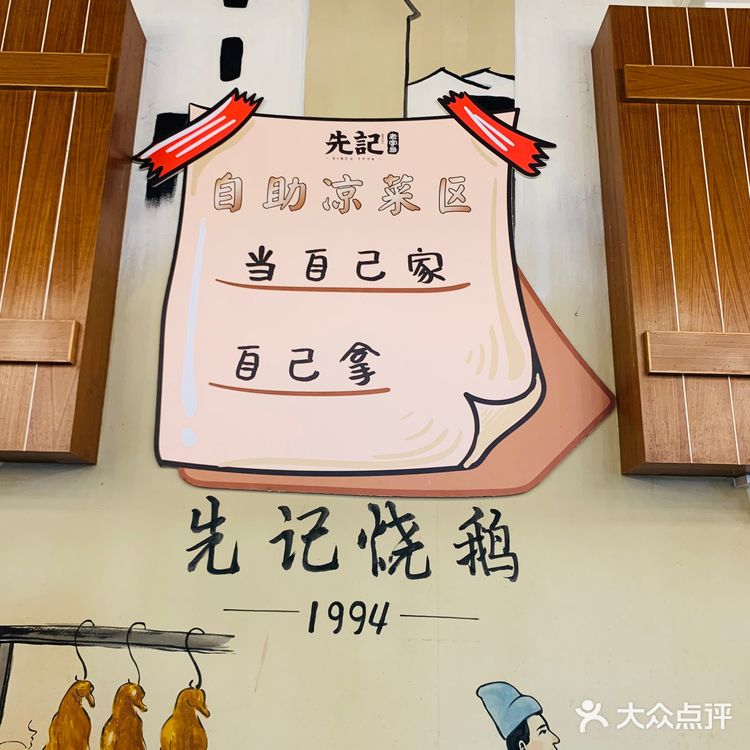 先記 老字号
SINCE 1994
自助凉菜区
当自己家
自己拿
先记烧鹅
1994
大众点评